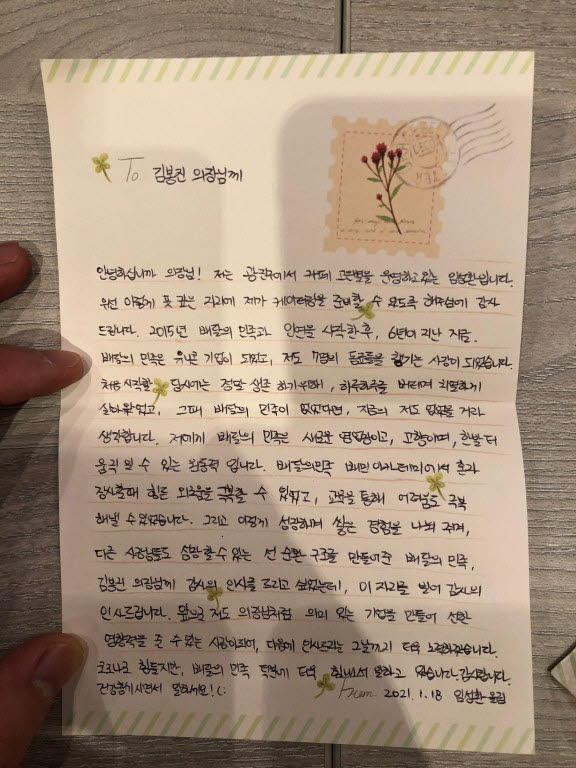 To 김봉진 의장님께
안녕하십니까 의장님! 저는 광진구에서 카페 고든밀을 운영하고 있는 임성환입니다.
우선 이렇게 뜻 깊은 자리에 제가 케이터링을 준비할 수 있도록 해주심에 감사
드립니다. 2015년 배달의 민족과 인연을 시작한 후, 6년이 지난 지금.
배달의 민족은 유니콘 기업이 되었고, 저도 7명의 동료들을 챙기는 사장이 되었습니다.
처음 시작할 당시에는 정말 생존하기 위해, 하루하루를 버티며 치열하게
살아왔었고, 그때 배달의 민족이 없었다면, 지금의 저도 없었을 거라
생각합니다. 저에게 배달의 민족은 새로운 영업장이고, 고향이며, 한발 더
움직일 수 있는 원동력 입니다. 배달의민족 배민아카데미에서 혼자
장사할때 힘든 외로움을 극복할 수 있었고, 교육을 통해 어려움도 극복
해낼 수 있었습니다. 그리고 이렇게 성장하며 쌓은 경험을 나눠 주며,
다른 사장님들도 성장할 수 있는 선 순환 구조를 만들어준 배달의 민족,
김봉진 의장님께 감사의 인사를 드리고 싶었는데!, 이 자리를 빌어 감사의
인사드립니다. 앞으로 저도 의장님처럼 의미 있는 기업을 만들어 선한
영향력을 줄 수 있는 사람이되어, 다음에 인사드리는 그날까지 더욱 노력하겠습니다.
코로나로 힘들지만, 배달의 민족 덕분에 더욱 힘내서 일하고 있습니다. 감사합니다.
건강챙기시면서 일하세요! (:
From. 2021. 1. 18 임성환 올림